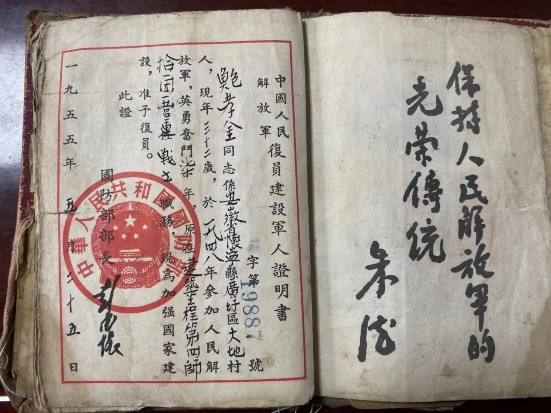 保持人民解放軍的
光榮傳統
朱德
中國人民
解放軍
復員建設軍人證明書
字第19887號
鮑孝金同志係安徽省懷寧縣廣圩區大地村
人,現年三十二歲,於一九四八年參加人民解
放軍,英勇奮鬥柒年,原在建筑工程第四師
拾團一營戰士職務,現為加强國家建
設,准予復員。
此證
國防部部長 彭德懷
中華人民共和國國防部
一九五五年五月二十五日